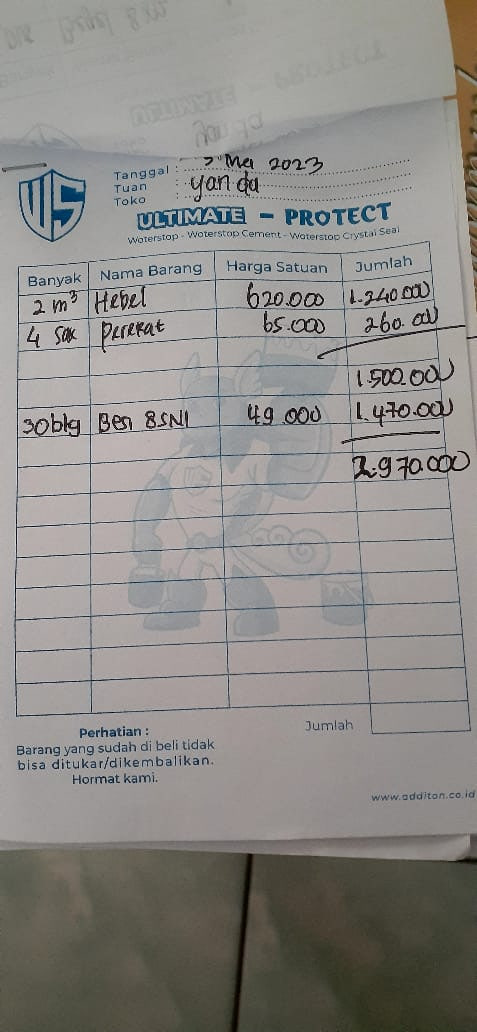 Tanggal : 3 Mei 2023
Tuan : yanda
Toko :
ULTIMATE - PROTECT
Waterstop - Waterstop Cement - Waterstop Crystal Seal
Banyak Nama Barang Harga Satuan Jumlah
2 m³ Hebel 620.000 1.240.000
4 sak perekat 65.000 260.000
1.500.000
30 btg Besi 8 SNI 49.000 1.470.000
2.970.000
Perhatian : Jumlah
Barang yang sudah di beli tidak
bisa ditukar/dikembalikan.
Hormat kami.
www.additon.co.id